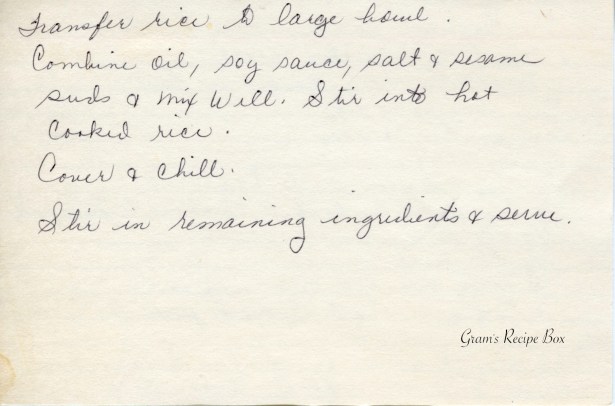 Transfer rice to large bowl.
Combine oil, soy sauce, salt & sesame
seeds & mix well. Stir into hot
cooked rice.
Cover & chill.
Stir in remaining ingredients & serve.
Gram's Recipe Box